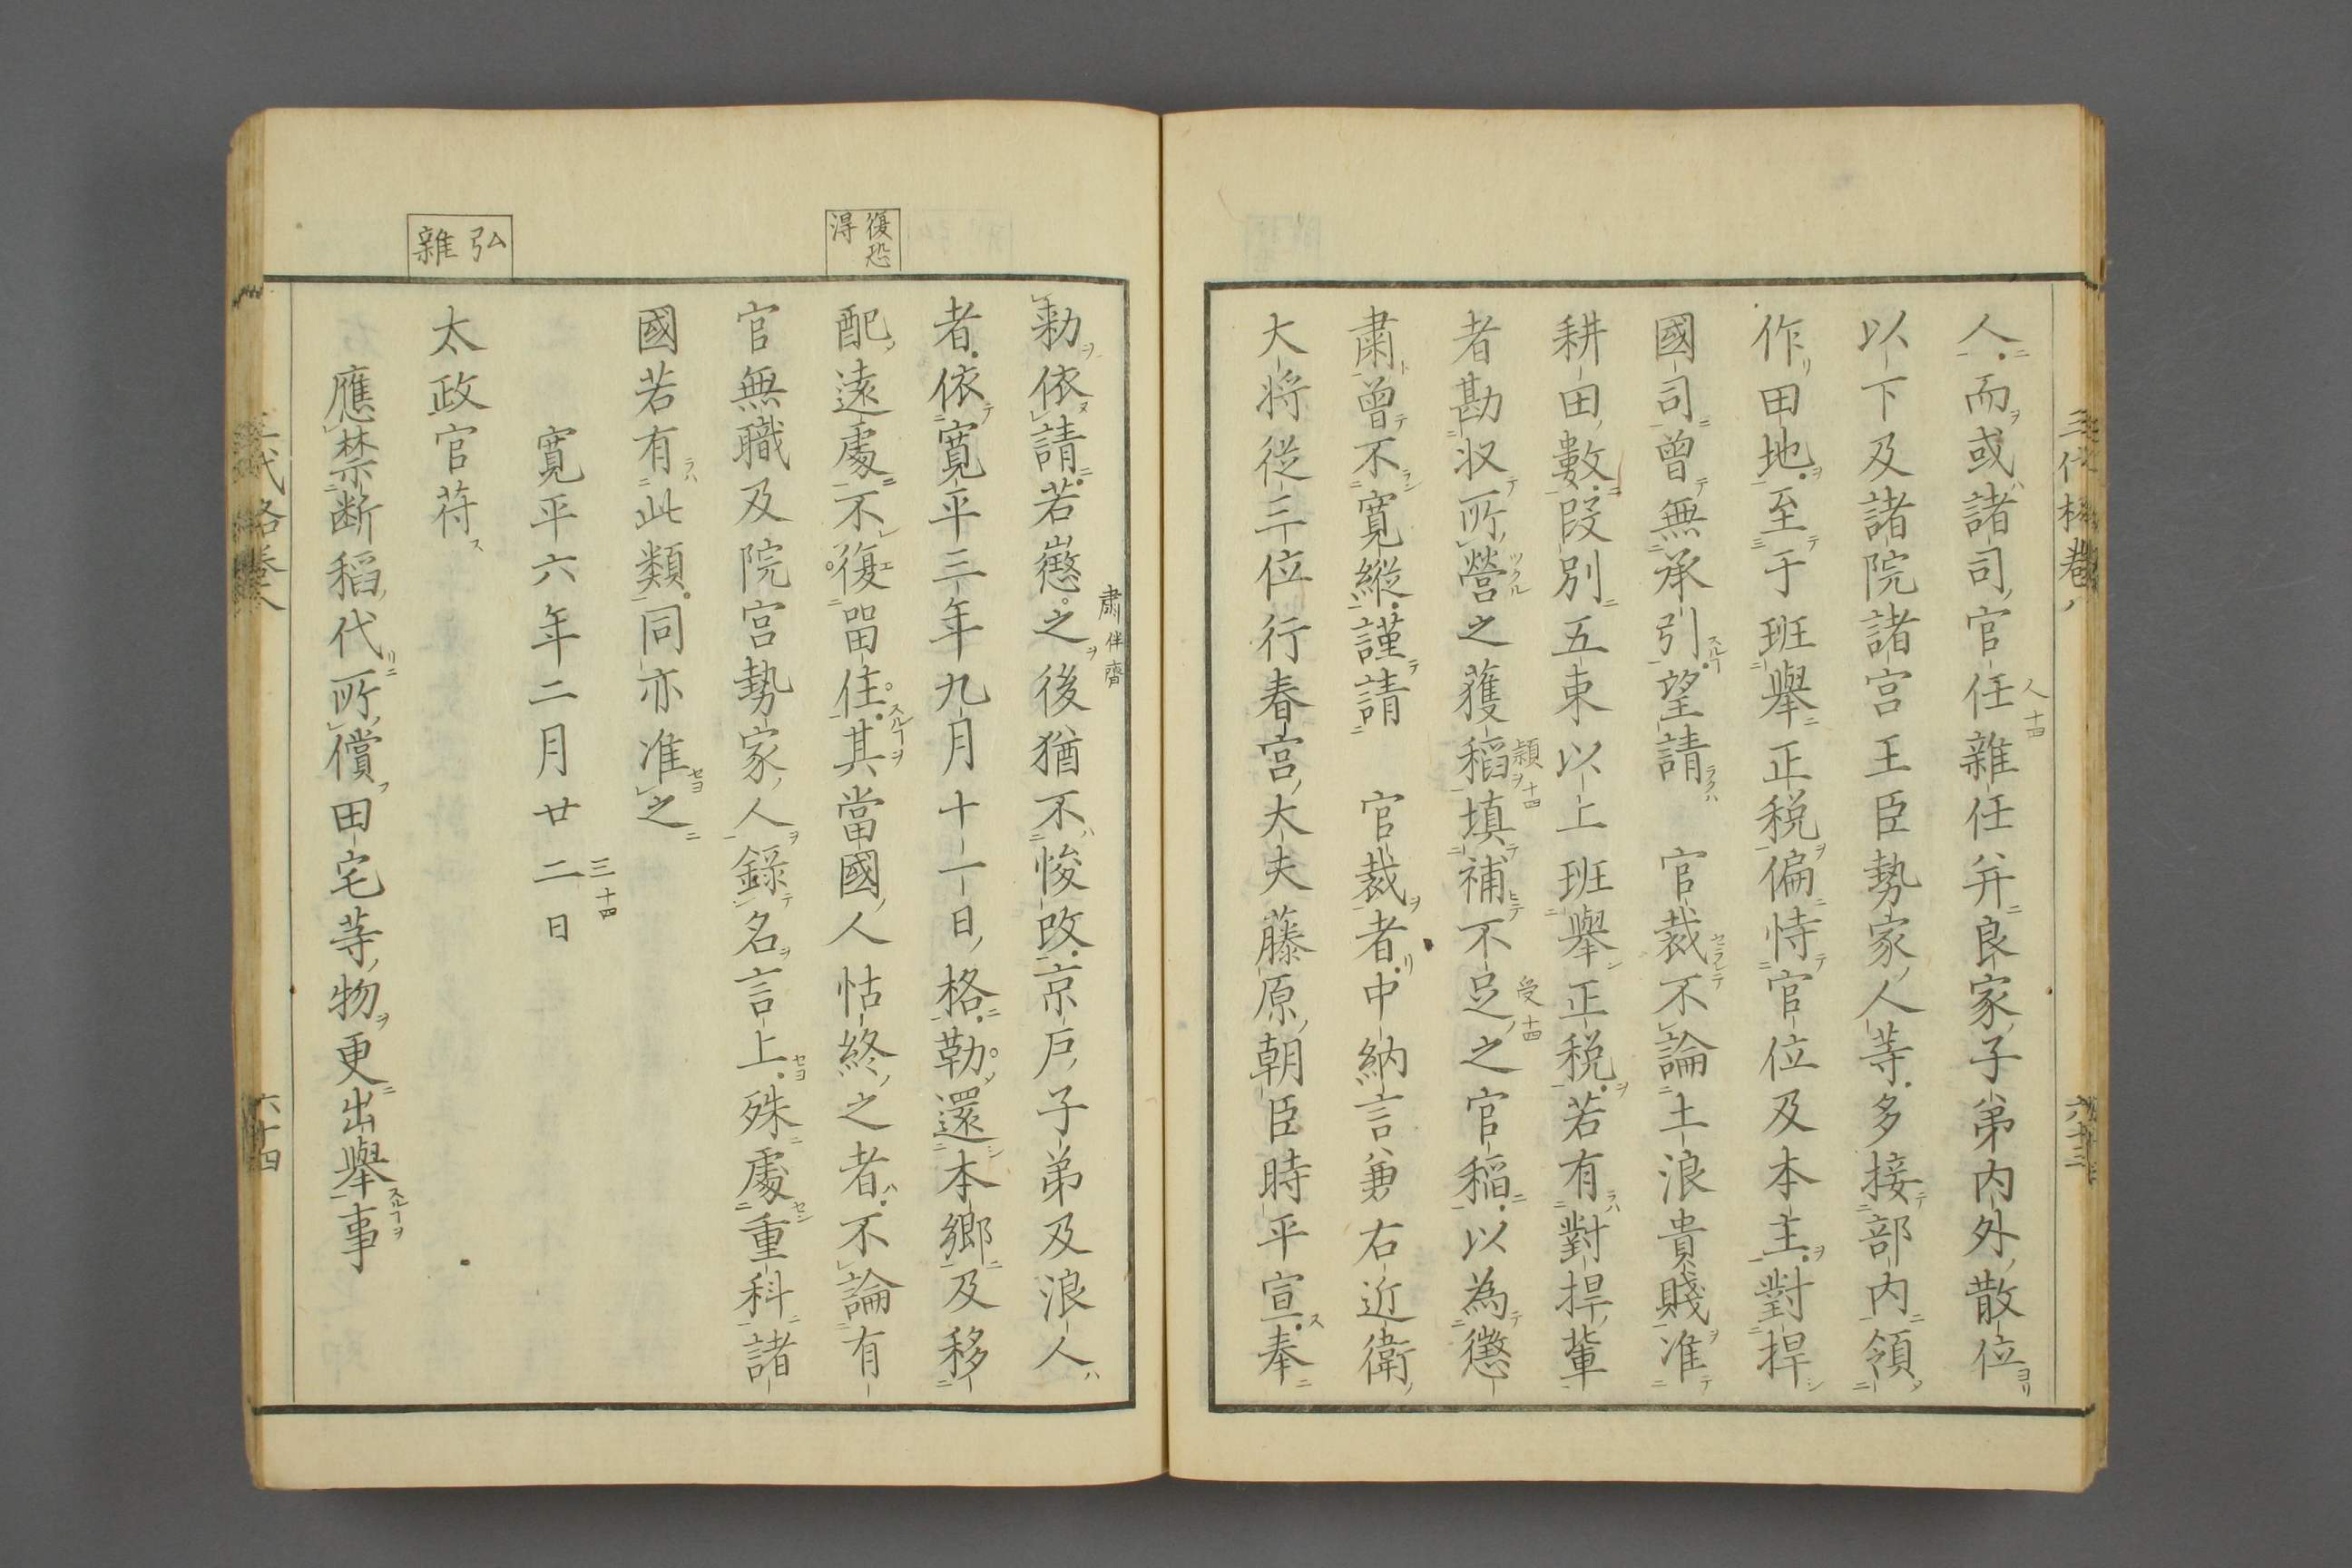 人而或諸司官任雜任并良家子弟内外散位
以下及諸院諸宮王臣勢家人等多接部内領
作田地至于班舉正税偏恃官位及本主對捍
國司曾無承引望請　官裁不論土浪貴賤准
耕田數段別五束以上班舉正税若有對捍輩
者勘収所營之獲稻填補不足之官稲以為懲
肅曾不寛縱謹請　官裁者中納言兼右近衛
大将従三位行春宮大夫藤原朝臣時平宣奉
復恐
得
勅依請若懲之後猶不悛改京戸子弟及浪人
者依寛平三年九月十一日格勒還本郷及移
配遠處不復畱住其當國人怙終之者不論有
官無職及院宮勢家人錄名言上殊處重科諸
國若有此類同亦准之
寛平六年二月廿二日
弘
雜
太政官苻
應禁断稻代所償田宅等物更出舉事
六十四